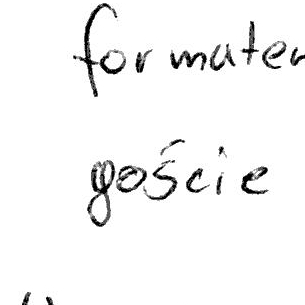 for mater
goście